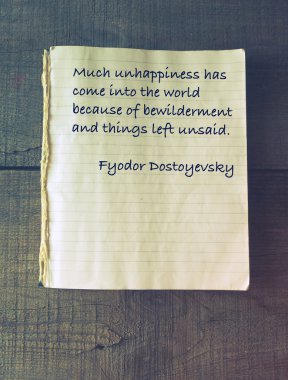 Much unhappiness has
come into the world
because of bewilderment
and things left unsaid.
Fyodor Dostoyevsky